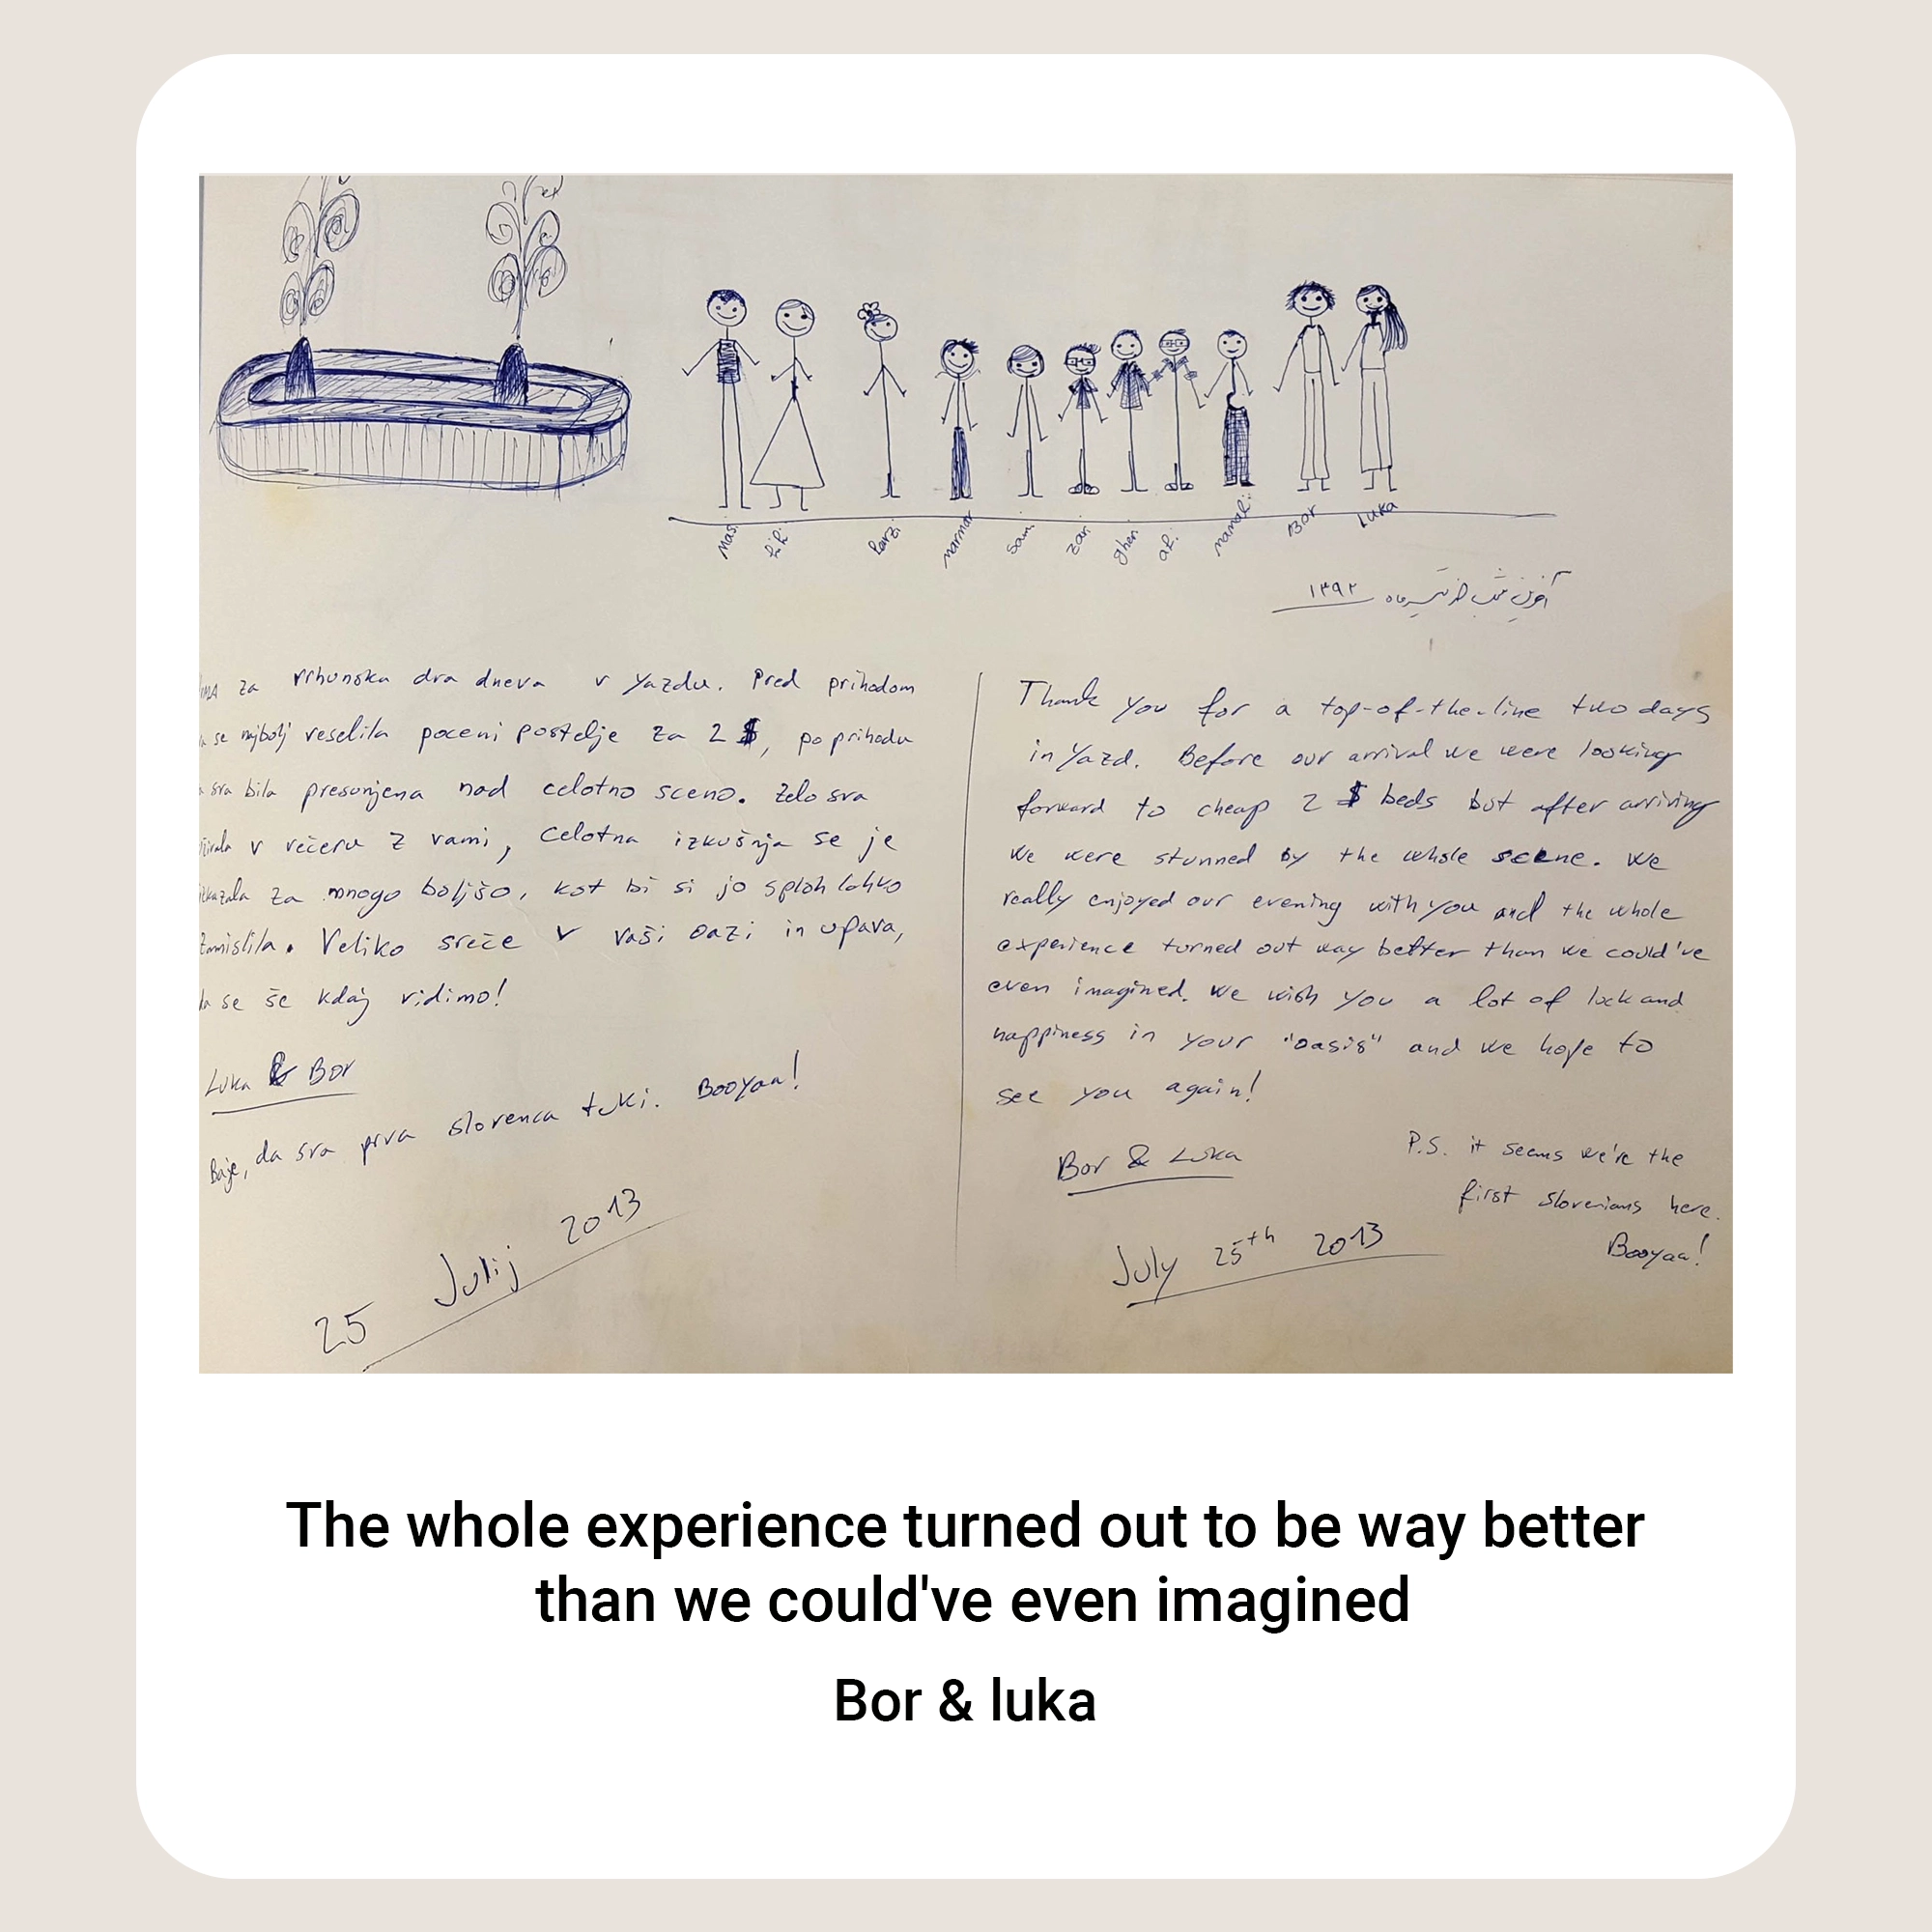 Masi
kiki
larzi
marmar
sami
zari
gheri
ali
mamali
Bor
Luka
آخرین شب از تیرماه ۱۳۹۲
za vrhunska dva dneva v Yazdu. Pred prihodom
se najbolj veselila poceni postelje za 2 $, po prihodu
sva bila presenjena nad celotno sceno. Zelo sva
v večeru z vami, celotna izkušnja se je
izkazala za mnogo boljšo, kot bi si jo sploh lahko
zamislila. Veliko sreče v vaši oazi in upava,
da se še kdaj vidimo!
Luka & Bor
Baje, da sva prva slovenca tuki. Booyaa!
25 Julij 2013
Thank you for a top-of-the-line two days
in Yazd. Before our arrival we were looking
forward to cheap 2 $ beds but after arriving
we were stunned by the whole scene. We
really enjoyed our evening with you and the whole
experience turned out way better than we could've
even imagined. We wish you a lot of luck and
happiness in your "oasis" and we hope to
see you again!
Bor & Luka
P.S. it seems we're the
first slovenians here.
Booyaa!
July 25th 2013
The whole experience turned out to be way better
than we could've even imagined
Bor & luka